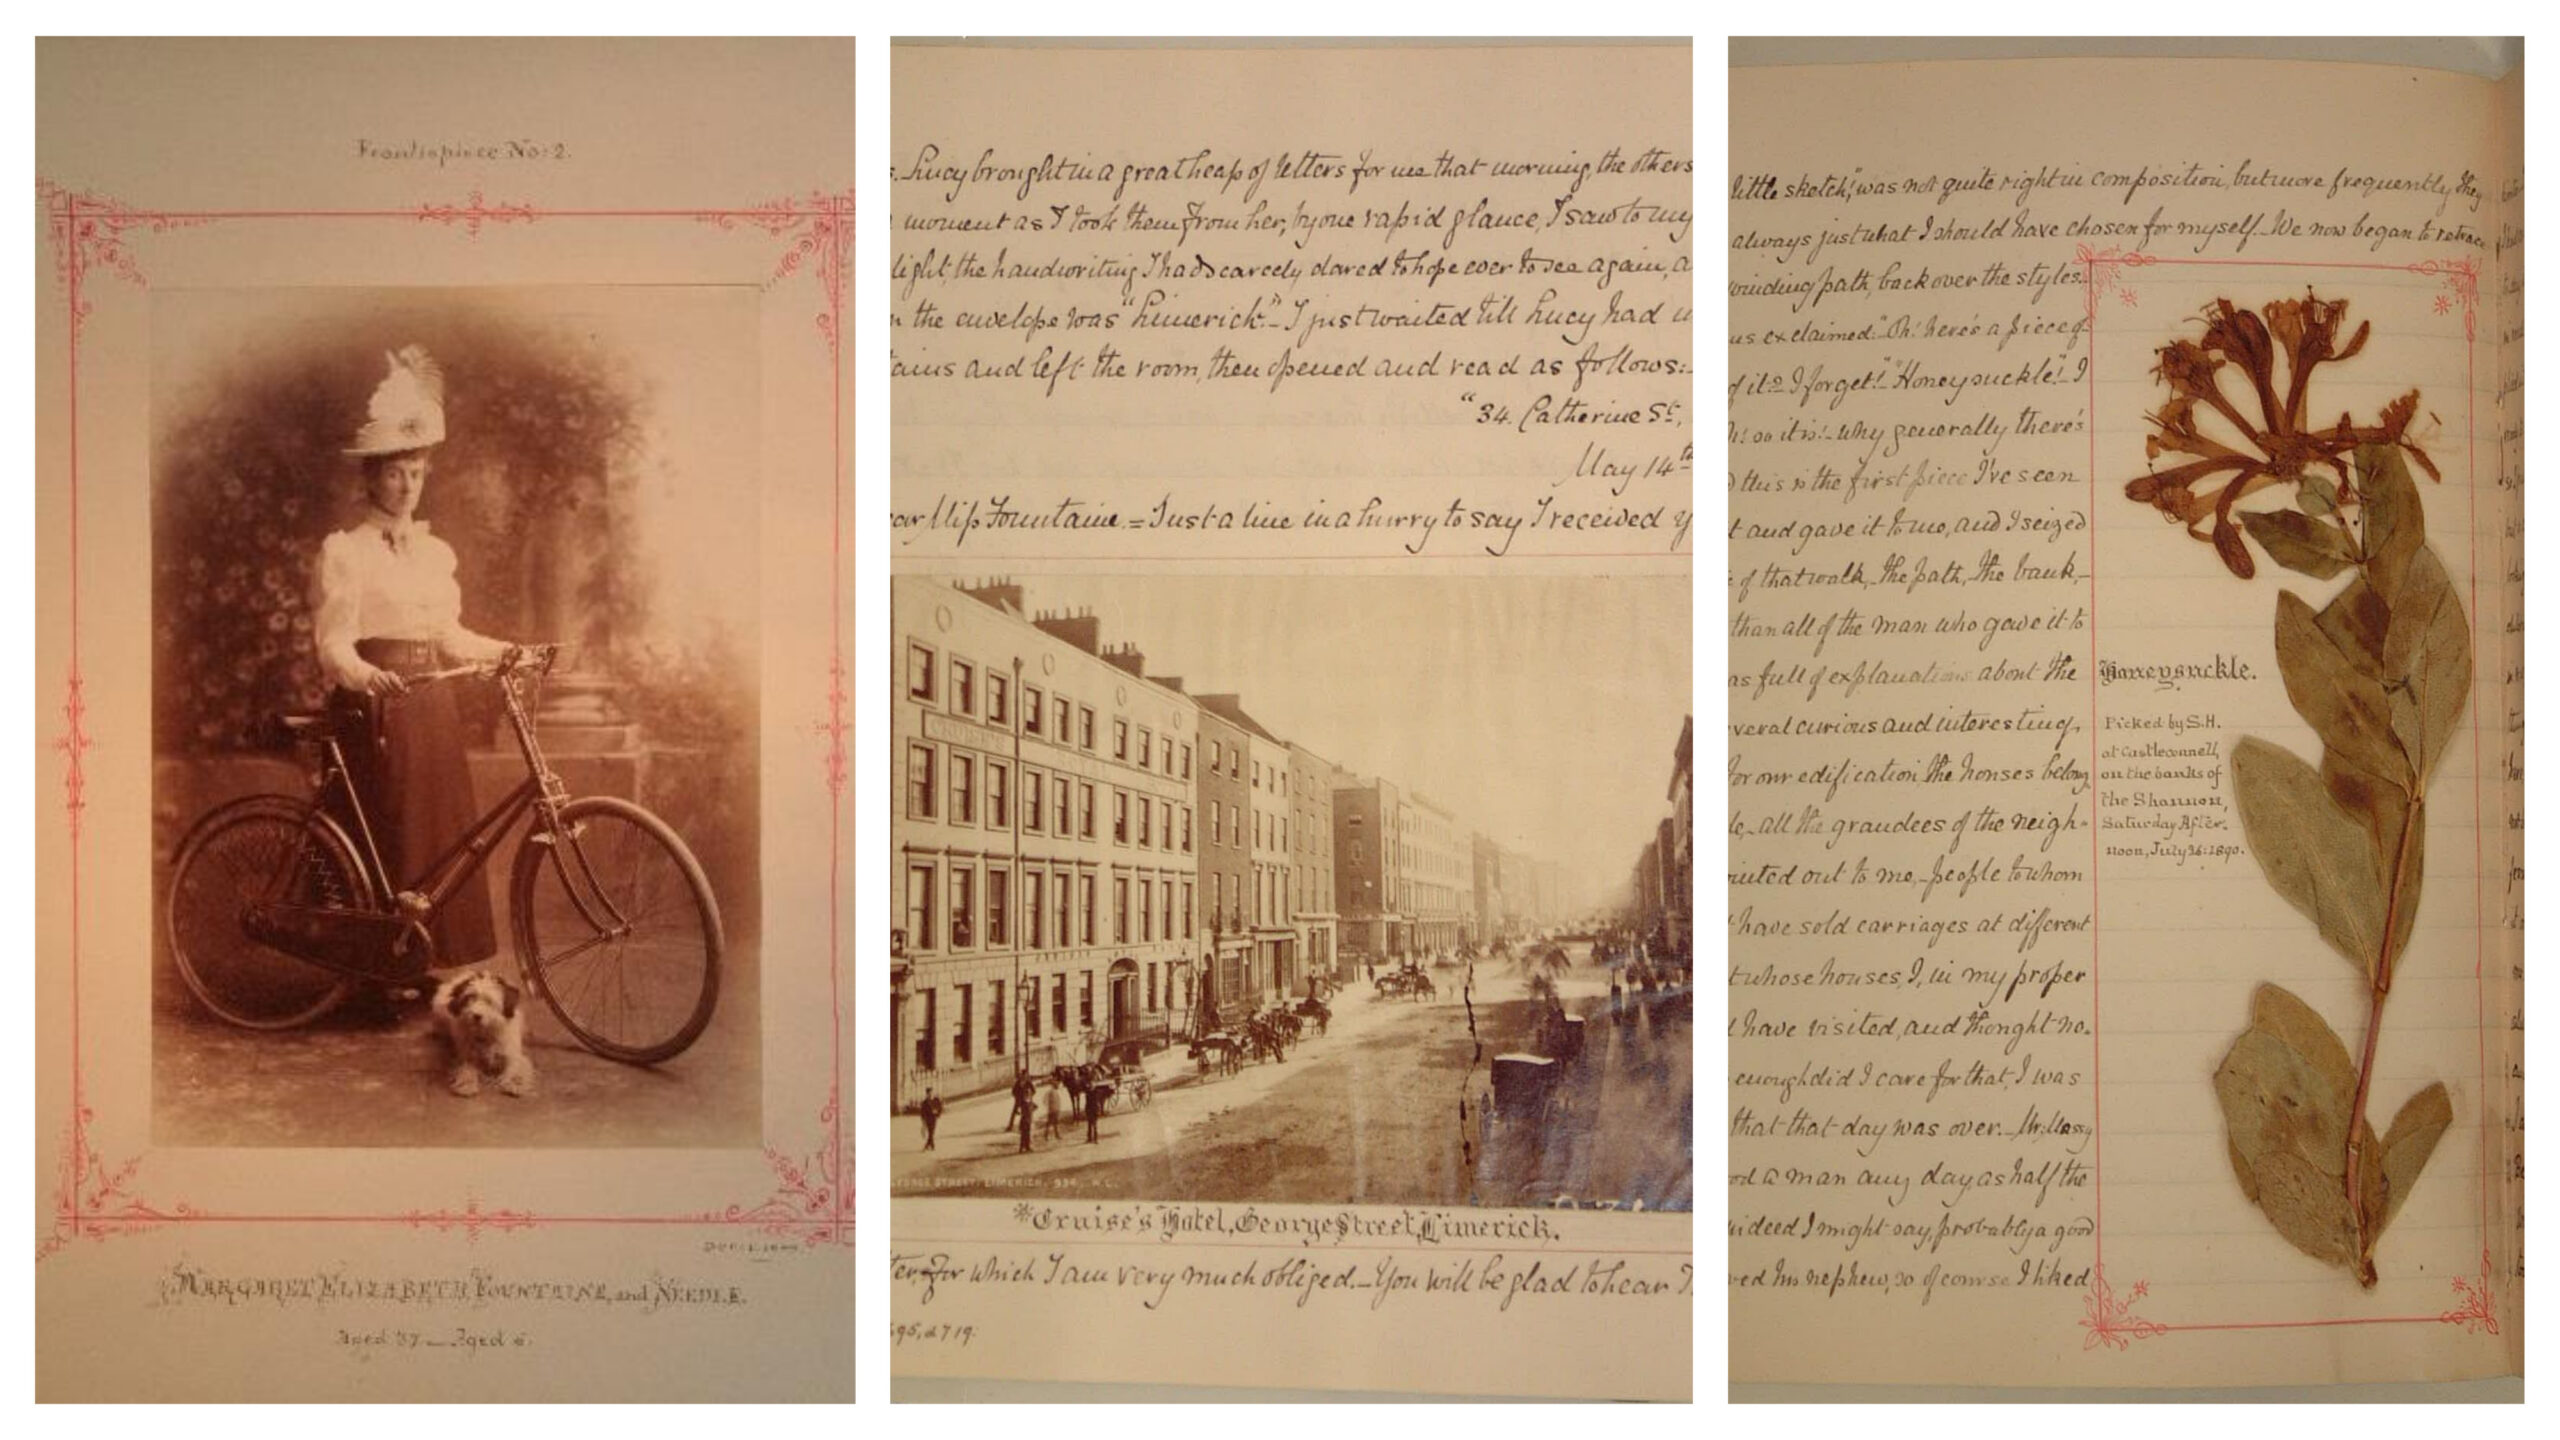 Frontispiece No: 2.
MARGARET ELIZABETH FOUNTAINE, and NEEDLE.
Aged 37 — Aged 6.
s. Lucy brought in a great heap of letters for me that morning, the others
moment as I took them from her, by one rapid glance, I saw to my
light, the handwriting I had scarcely dared to hope ever to see again, a
n the envelope was "Limerick". – I just waited till Lucy had
ains and left the room, then opened and read as follows:-
"34. Catherine St,
May 14th
ear Miss Fountaine. = Just a line in a hurry to say I received y
CRUISE'S
GEORGE STREET. LIMERICK. 934. W.L.
*Cruise's Hotel, George Street, Limerick.
ter, for which I am very much obliged. – You will be glad to hear I
95, & 719.
little sketch", was not quite right in composition, but more frequently they
always just what I should have chosen for myself. – We now began to retrace
winding path, back over the styles.
us exclaimed: "Oh! here's a piece of
of it? I forget!" "Honeysuckle!" I
h! so it is! – why generally there's
this is the first piece I've seen
t and gave it to me, and I seized
of that walk, – the path, – the bank, –
than all of the man who gave it to
as full of explanations about the
veral curious and interesting
for our edification, the houses belong
le, – all the grandees of the neigh-
ointed out to me, – people to whom
have sold carriages at different
t whose houses, I, in my proper
have visited, and thought no.
enough did I care for that, I was
that that day was over. – Mr. Massy
od a man any day, as half the
indeed I might say, probably a good
ved his nephew, so of course I liked
Honeysuckle.
Picked by S.H.
at Castleconnell,
on the banks of
the Shannon,
Saturday After-
noon, July 26: 1890.